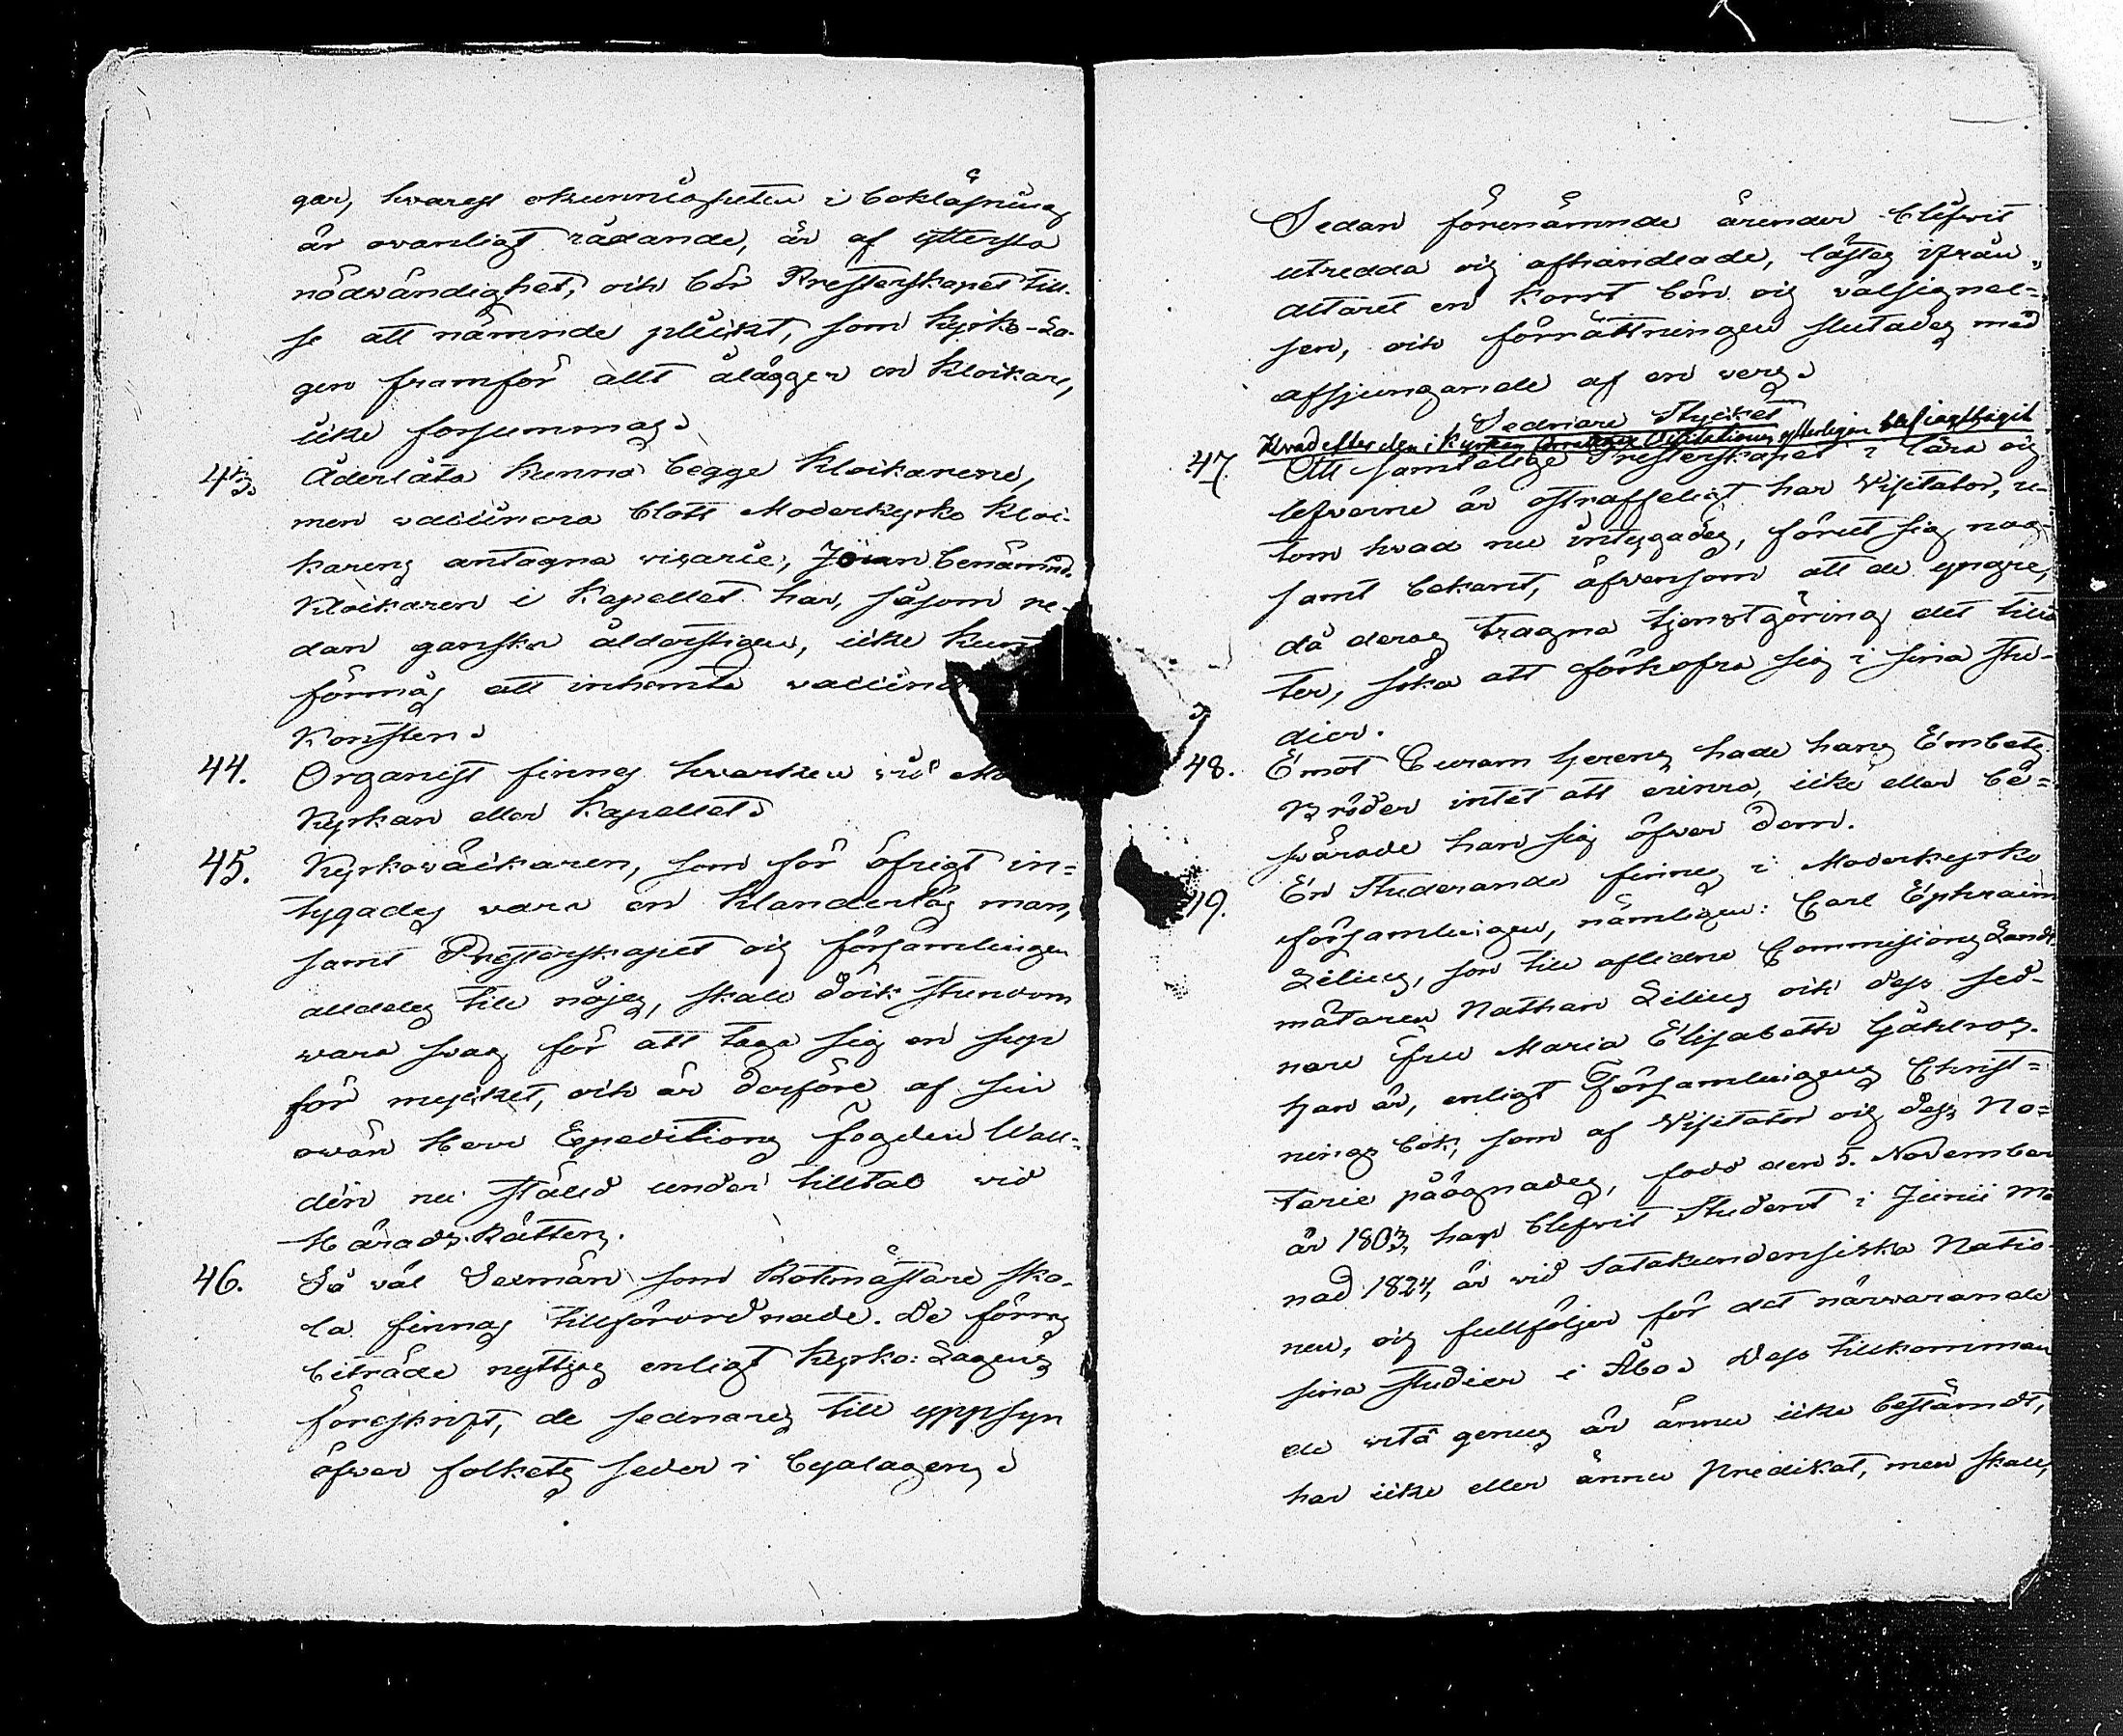 gar, hwarest okunnigheten i bokläsning
är owanligt rådande, är af yttersta
nödwändighet, och bör Presterskapet till-
se att nämnde plickt, som Kyrko-La-
gen framför allt ålägger en Klockare,
icke forsummas.
43. Åderlåta kunna begge Klockarene,
men vaccinera blott Moderkyrko Kloc-
karens antagna vicarie, benämnd.
Klockaren i Kapellet har, såsom re-
dan ganska ålderstigen, icke
förmåg att inhemta
Konsten.
44. Organist finnes hwarken wid
Kyrkan eller Kapellet.
45. Kyrkowäcktaren, som för öfrigt in=
tygades vara en klanderlös man,
samt Presterskapet och församlingen
alldeles till nöjes, skall dock stundom
wara swag för att taga sig en sup
för mycket, och är derföre af sin
owän Herr Expeditions fogden Wall=
dén nu ställd under tilltal wid
Härads-Rätten.
46. Så väl Sexmän som Rotemästare sko-
la finnas tillförordnade. De förres
biträde nyttjas enligt Kyrko: Lagens
föreskrift, de sednares till uppsyn
öfwer folkets seder i byalagen.
Sedan förenämnde ärender blifwit
utredda och afhandlade, lästes ifrån
altaret en kort bön och välsignel=
sen, och förrättningen slutades med
afsjungande af en vers.
Sednare Stycket
Hvad efter den i Kyrkan förrättade Visitationen ytterligare blef iagttagit
47. Att samtelige Presterskapet i lära och
lefwerne är ostraffeligt har Visitator, u-
tom hwad nu intygades, förut sig nog-
samt bekant, äfwensom att de yngre,
då deras tragna tjenstgöring det tillå
ter, söka att förkofra sig i sina stu-
dier.
48. Emot Curam gerens hade hans Embets
Bröder intet att erinra, icke eller be=
swärade han sig öfwer dem.
49. En Studerande finnes i Moderkyrko
församlingen, nämligen: Carl Ephraim
Lilius, son till aflidne Commissions Landt
mätaren Nathan Lilius och dess sed-
nare fru Maria Elisabeth
Han är, enligt Församlingens Christ=
nings bok, som af Visitator och dess No=
tarie påögnades, född den 5. November
år 1803, har blifwit Student i Junii må
nad 1824, är wid Satakundensiska Natio-
nen, och fullföljer för det närwarande
sina studier i Åbo. Dess tillkomman
de vitæ genus är ännu icke bestämdt,
har icke eller ännu predikat, men skall,